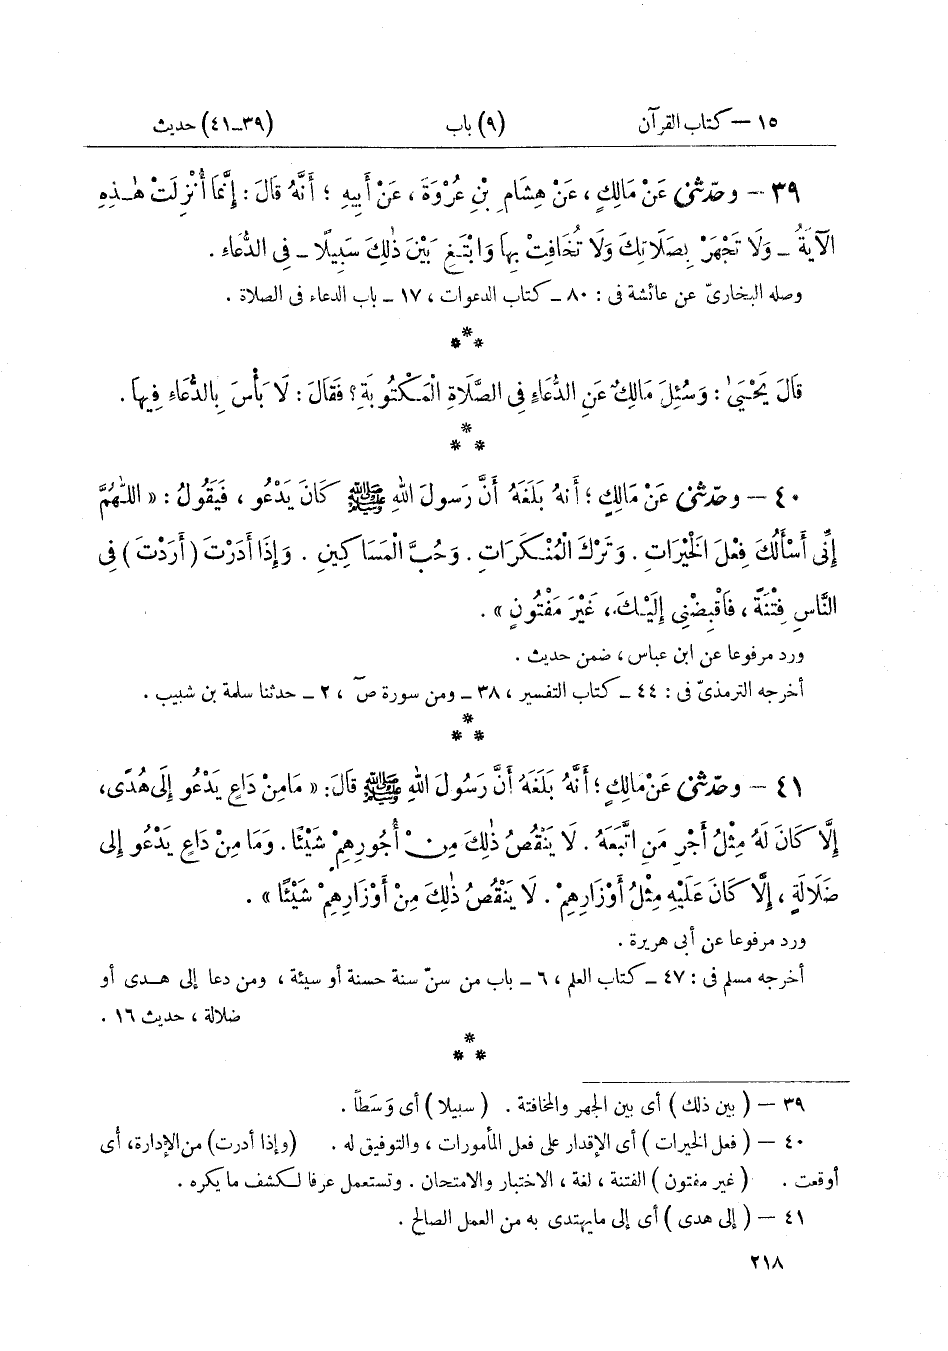 ١٥ — كتاب القرآن (٩) باب (٣٩-٤١) حديث
٣٩ — وحدّثني عَنْ مَالِكٍ ، عَنْ هِشَامِ بْنِ عُرْوَةَ ، عَنْ أَبِيهِ ؛ أَنَّهُ قَالَ : إِنَّمَا أُنْزِلَتْ هٰذِهِ
الآيَةُ ـ وَلَا تَجْهَرْ بِصَلَاتِكَ وَلَا تُخَافِتْ بِهَا وَابْتَغِ بَيْنَ ذٰلِكَ سَبِيلًا ـ فِي الدُّعَاءِ .
وصله البخارىّ عن عائشة فى : ٨٠ ـ كتاب الدعوات ، ١٧ ـ باب الدعاء فى الصلاة .
* * *
قَالَ يَحْيَىٰ : وَسُئِلَ مَالِكٌ عَنِ الدُّعَاءِ فِي الصَّلَاةِ الْمَكْتُوبَةِ ؟ فَقَالَ : لَا بَأْسَ بِالدُّعَاءِ فِيهَا .
* * *
٤٠ — وحدّثني عَنْ مَالِكٍ ؛ أَنهُ بَلَغَهُ أَنَّ رَسولَ اللهِ ﷺ كَانَ يَدْعُو ، فَيَقُولُ : « اللّٰهُمَّ
إِنِّي أَسْأَلُكَ فِعْلَ الْخَيْرَاتِ . وَتَرْكَ الْمُنْكَرَاتِ . وَحُبَّ الْمَسَاكِينِ . وَإِذَا أَدَرْتَ ( أَرَدْتَ ) فِي
النَّاسِ فِتْنَةً ، فَاقْبِضْنِي إِلَيْكَ ، غَيْرَ مَفْتُونٍ » .
ورد مرفوعا عن ابن عباس ، ضمن حديث .
أخرجه الترمذىّ فى : ٤٤ ـ كتاب التفسير ، ٣٨ ـ ومن سورة صٓ ، ٢ ـ حدثنا سلمة بن شبيب .
* * *
٤١ — وحدّثني عَنْ مَالِكٍ ؛ أَنَّهُ بَلَغَهُ أَنَّ رَسُولَ اللهِ ﷺ قَالَ : « مَا مِنْ دَاعٍ يَدْعُو إِلَى هُدًى ،
إِلَّا كَانَ لَهُ مِثْلُ أَجْرِ مَنِ اتَّبَعَهُ . لَا يَنْقُصُ ذٰلِكَ مِنْ أُجُورِهِمْ شَيْئًا . وَمَا مِنْ دَاعٍ يَدْعُو إِلى
ضَلَالَةٍ ، إِلَّا كَانَ عَلَيْهِ مِثْلُ أَوْزَارِهِمْ . لَا يَنْقُصُ ذٰلِكَ مِنْ أَوْزَارِهِمْ شَيْئًا » .
ورد مرفوعا عن أبى هريرة .
أخرجه مسلم فى : ٤٧ ـ كتاب العلم ، ٦ ـ باب من سنّ سنة حسنة أو سيئة ، ومن دعا إلى هدى أو
ضلالة ، حديث ١٦ .
* * *
٣٩ — ( بين ذلك ) أى بين الجهر والمخافتة . ( سبيلا ) أى وَسَطاً .
٤٠ — ( فعل الخيرات ) أى الإقدار على فعل المأمورات ، والتوفيق له . (وإذا أدرت) من الإدارة، أى
أوقعت . ( غير مفتون ) الفتنة ، لغة ، الاختبار والامتحان . وتستعمل عرفا لكشف ما يكره .
٤١ — ( إلى هدى ) أى إلى ما يهتدى به من العمل الصالح .
٢١٨